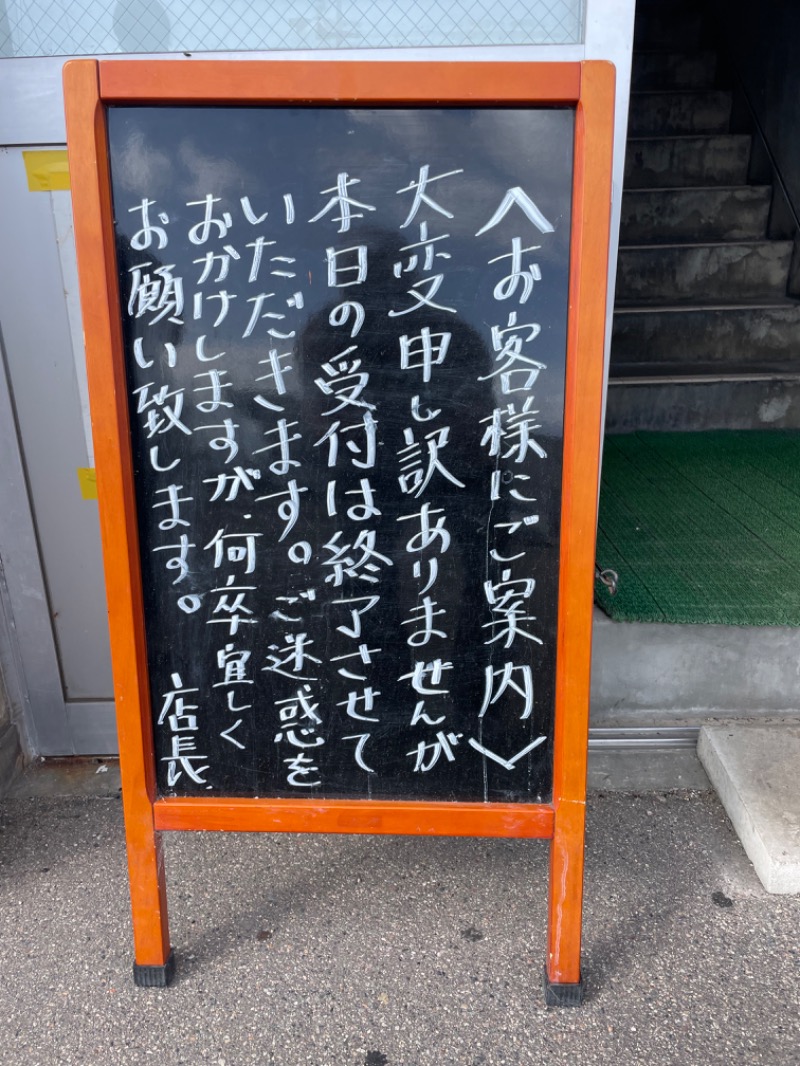 〈お客様にご案内〉
大変申し訳ありませんが
本日の受付は終了させて
いただきます。ご迷惑を
おかけしますが、何卒宜しく
お願い致します。 店長